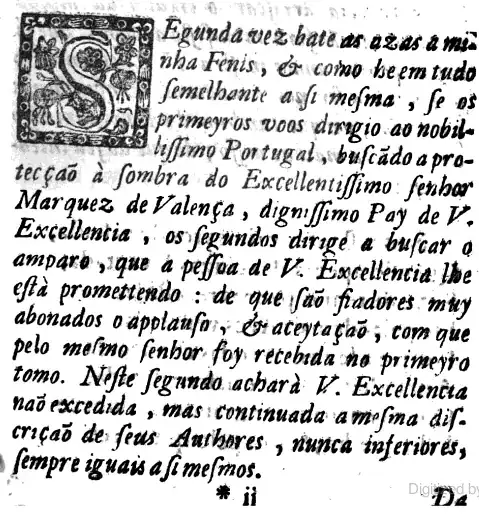 SEgunda vez bate as azas a mi-
nha Fenis, & como he em tudo
ſemelhante a ſi meſma, ſe os
primeyros voos dirigio ao nobil-
liſſimo Portugal, buſcãdo a pro-
tecçaõ à ſombra do Excellentiſſimo ſenhor
Marquez de Valença, digniſſimo Pay de V.
Excellencia, os ſegundos dirige a buſcar o
amparo, que a peſſoa de V. Excellencia lhe
eſtà promettendo: de que ſaõ fiadores muy
abonados o applauſo, & aceytaçaõ, com que
pelo meſmo ſenhor foy recebida no primeyro
tomo. Neſte ſegundo acharà V. Excellencia
naõ excedida, mas continuada a meſma diſ-
criçaõ de ſeus Authores, nunca inferiores,
ſempre iguais a ſi meſmos.
* ii
De
Digitized by